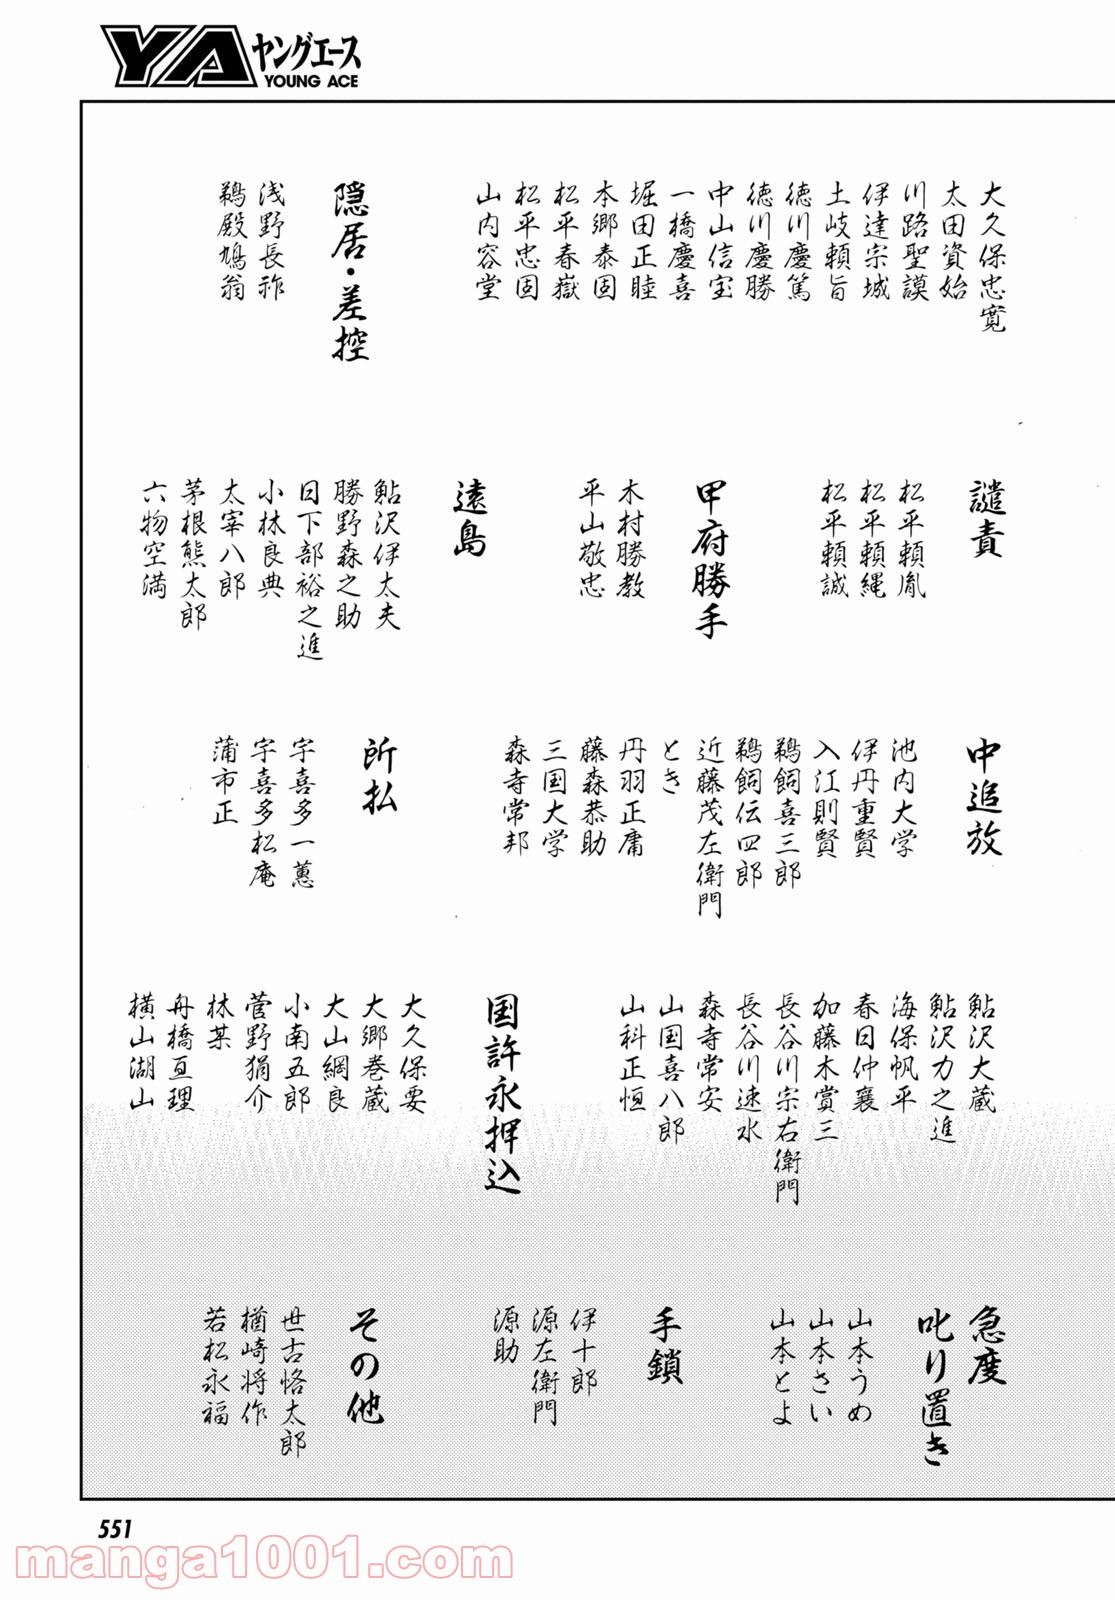 YA ヤングエース
YOUNG ACE
大久保忠寛
太田資始
川路聖謨
伊達宗城
土岐頼旨
徳川慶篤
徳川慶勝
中山信宝
一橋慶喜
堀田正睦
本郷泰固
松平春嶽
松平忠固
山内容堂
隠居・差控
浅野長祚
鵜殿鳩翁
譴責
松平頼胤
松平頼縄
松平頼誠
甲府勝手
木村勝教
平山敬忠
遠島
鮎沢伊太夫
勝野森之助
日下部裕之進
小林良典
太宰八郎
茅根熊太郎
六物空満
中追放
池内大学
伊丹重賢
入江則賢
鵜飼喜三郎
鵜飼伝四郎
近藤茂左衛門
とき
丹羽正庸
藤森恭助
三国大学
森寺常邦
所払
宇喜多一蕙
宇喜多松庵
蒲市正
鮎沢大蔵
鮎沢力之進
海保帆平
春日仲襄
加藤木賞三
長谷川宗右衛門
長谷川速水
森寺常安
山国喜八郎
山科正恒
国許永押込
大久保要
大郷巻蔵
大山綱良
小南五郎
菅野狷介
林某
舟橋亘理
横山湖山
急度
叱り置き
山本うめ
山本さい
山本とよ
手鎖
伊十郎
源左衛門
源助
その他
世古恪太郎
楢崎将作
若松永福
551
manga1001.com